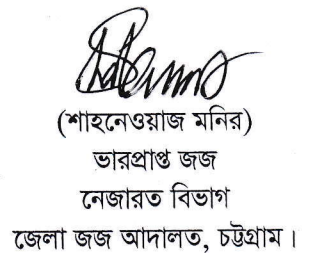 (শাহনেওয়াজ মনির)
ভারপ্রাপ্ত জজ
নেজারত বিভাগ
জেলা জজ আদালত, চট্টগ্রাম।